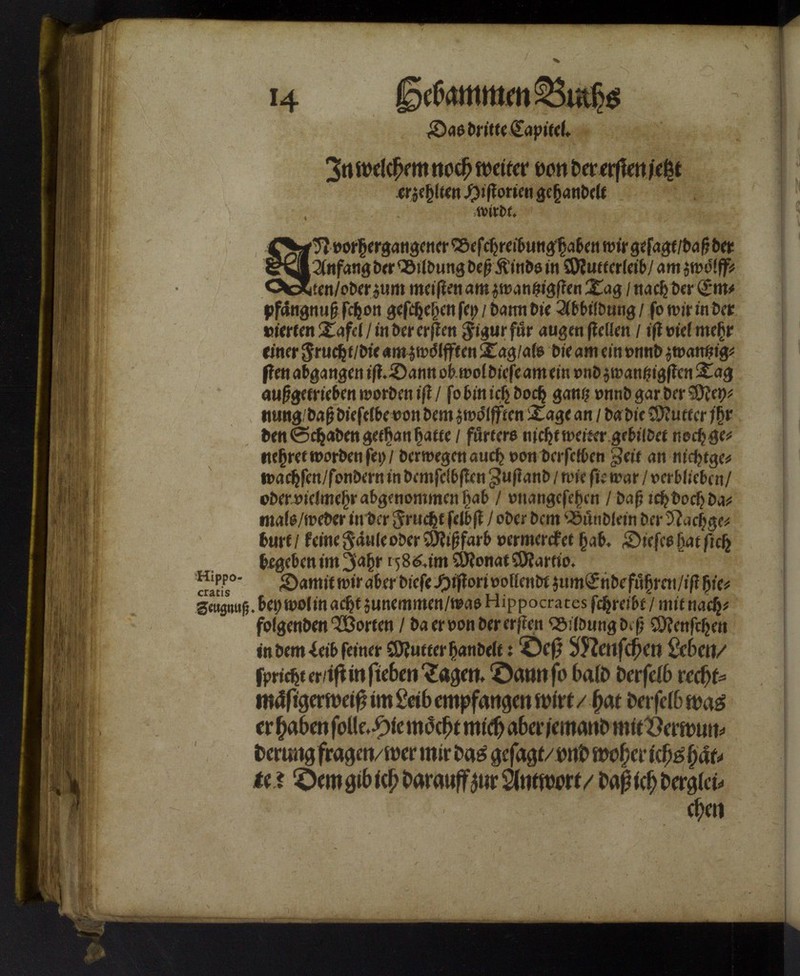 14 Hebammen Buchs
Das dritte Capitel.
In welchem noch weiter von der ersten jetzt
erzehlten Historien gehandelt
wirdt.
IN vorhergangener Beschreibung haben wir gesagt/daß der
Anfang der Bildung deß Kinds in Mutterleib/ am zwölff-
ten/oder zum meisten am zwantzigsten Tag / nach der Em-
pfängnuß schon geschehen sey / dann die Abbildung / so wir in der
vierten Tafel / in der ersten Figur für augen stellen / ist viel mehr
einer Frucht/die am zwölfften Tag/als die am ein vnnd zwantzig-
sten abgangen ist. Dann ob wol diese am ein vnd zwantzigsten Tag
außgetrieben worden ist / so bin ich doch gantz vnnd gar der Mey-
nung/daß dieselbe von dem zwölfften Tage an / da die Mutter jhr
den Schaden gethan hatte / fürters nicht weiter gebildet noch ge-
nehret worden sey / derwegen auch von derselben Zeit an nichtge-
wachsen/sondern in demselbsten Zustand / wie sie war / verblieben/
oder vielmehr abgenommen hab / vnangesehen / daß ich doch da-
mals/weder in der Frucht selbst / oder dem Bündlein der Nachge-
burt / keine Fäule oder Mißfarb vermercket hab. Dieses hat sich
begeben im Jahr 1586. im Monat Martio.
Hippo-
cratis
Zeugnuß.
Damit wir aber diese Histori vollendt zum Ende führen/ist hie-
bey wol in acht zunemmen/was Hippocrates schreibt / mit nach-
folgenden Worten / da er von der ersten Bildung deß Menschen
in dem Leib seiner Mutter handelt: Deß Menschen Leben/
spricht er/ist in sieben Tagen. Dann so bald derselb recht-
mäsigerweiß im Leib empfangen wirt / hat derselb was
er haben solle. Hie möcht mich aber jemand mit Verwun-
derung fragen/wer mir das gesagt/vnd woher ichs hät-
te? Dem gib ich darauff zur Antwort / daß ich derglei-
chen